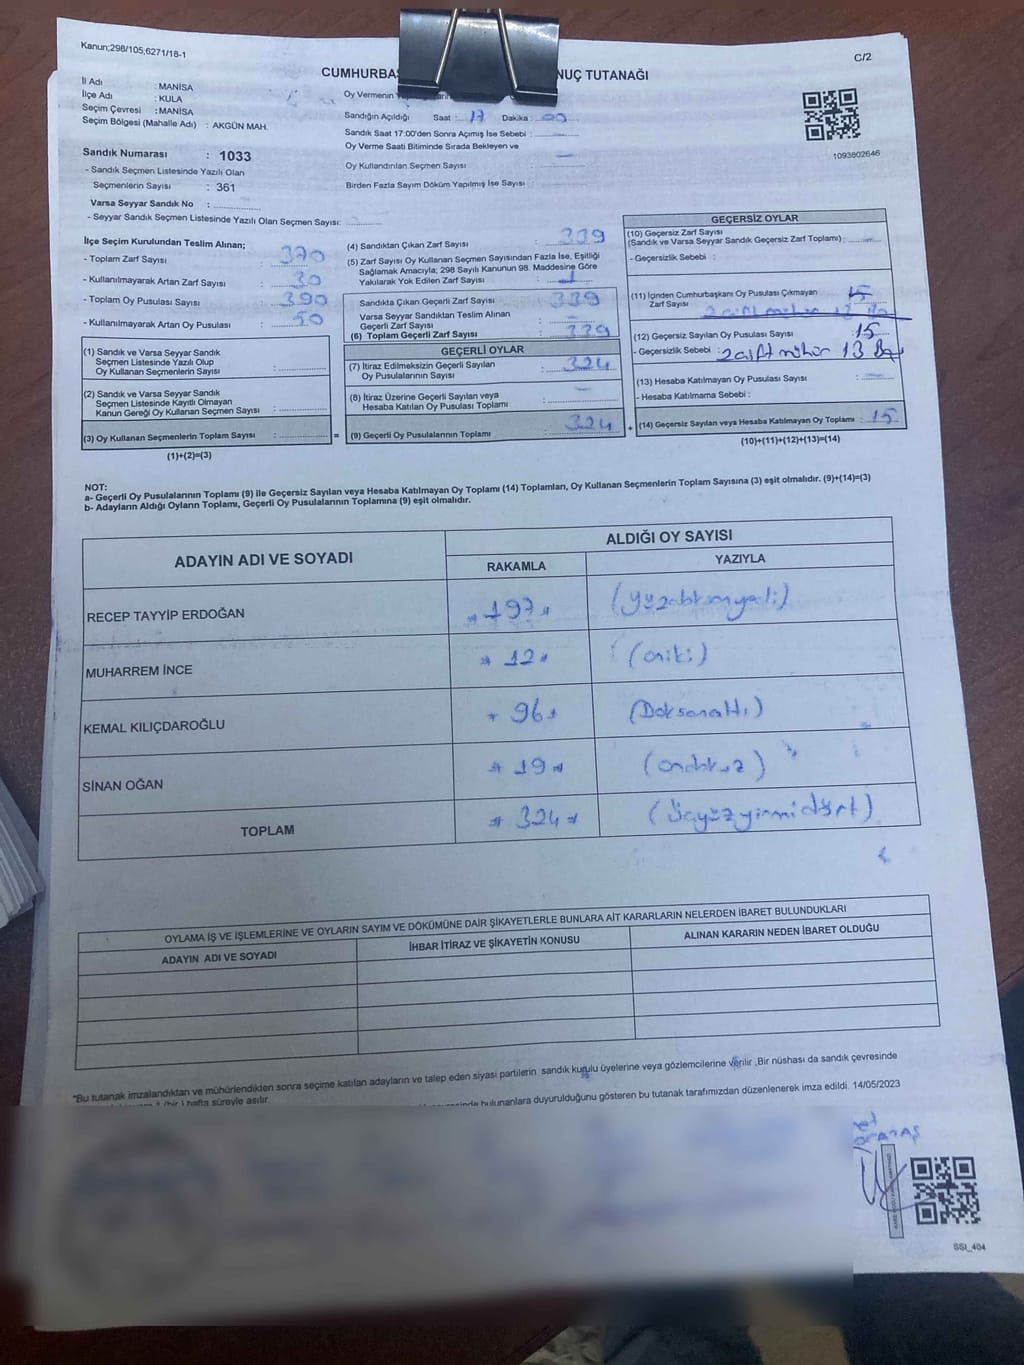 Kanun;298/105;6271/18-1
C/2
CUMHURBAŞ NUÇ TUTANAĞI
İl Adı : MANİSA
İlçe Adı : KULA
Seçim Çevresi : MANİSA
Seçim Bölgesi (Mahalle Adı) : AKGÜN MAH.
Oy Vermenin
Sandığın Açıldığı Saat : 17 Dakika : 00
Sandık Saat 17:00'den Sonra Açımış İse Sebebi :
Oy Verme Saati Bitiminde Sırada Bekleyen ve
Oy Kullandırılan Seçmen Sayısı :
Birden Fazla Sayım Döküm Yapılmış İse Sayısı :
1093802646
Sandık Numarası : 1033
- Sandık Seçmen Listesinde Yazılı Olan
Seçmenlerin Sayısı : 361
Varsa Seyyar Sandık No :
- Seyyar Sandık Seçmen Listesinde Yazılı Olan Seçmen Sayısı:
İlçe Seçim Kurulundan Teslim Alınan;
- Toplam Zarf Sayısı : 370
- Kullanılmayarak Artan Zarf Sayısı : 30
- Toplam Oy Pusulası Sayısı : 390
- Kullanılmayarak Artan Oy Pusulası : 50
(1) Sandık ve Varsa Seyyar Sandık
Seçmen Listesinde Yazılı Olup
Oy Kullanan Seçmenlerin Sayısı :
(2) Sandık ve Varsa Seyyar Sandık
Seçmen Listesinde Kayıtlı Olmayan
Kanun Gereği Oy Kullanan Seçmen Sayısı :
(3) Oy Kullanan Seçmenlerin Toplam Sayısı :
(1)+(2)=(3)
(4) Sandıktan Çıkan Zarf Sayısı : 339
(5) Zarf Sayısı Oy Kullanan Seçmen Sayısından Fazla İse, Eşitliği
Sağlamak Amacıyla; 298 Sayılı Kanunun 98. Maddesine Göre
Yakılarak Yok Edilen Zarf Sayısı : 1
Sandıkta Çıkan Geçerli Zarf Sayısı : 339
Varsa Seyyar Sandıktan Teslim Alınan
Geçerli Zarf Sayısı :
(6) Toplam Geçerli Zarf Sayısı : 339
GEÇERLİ OYLAR
(7) İtiraz Edilmeksizin Geçerli Sayılan
Oy Pusulalarının Sayısı : 324
(8) İtiraz Üzerine Geçerli Sayılan veya
Hesaba Katılan Oy Pusulası Toplamı :
= (9) Geçerli Oy Pusulalarının Toplamı : 324
GEÇERSİZ OYLAR
(10) Geçersiz Zarf Sayısı
(Sandık ve Varsa Seyyar Sandık Geçersiz Zarf Toplamı) :
- Geçersizlik Sebebi :
(11) İçinden Cumhurbaşkanı Oy Pusulası Çıkmayan
Zarf Sayısı : 15
(12) Geçersiz Sayılan Oy Pusulası Sayısı : 15
- Geçersizlik Sebebi : 2 çift mühür 13
(13) Hesaba Katılmayan Oy Pusulası Sayısı :
- Hesaba Katılmama Sebebi :
+ (14) Geçersiz Sayılan veya Hesaba Katılmayan Oy Toplamı : 15
(10)+(11)+(12)+(13)=(14)
NOT:
a- Geçerli Oy Pusulalarının Toplamı (9) ile Geçersiz Sayılan veya Hesaba Katılmayan Oy Toplamı (14) Toplamları, Oy Kullanan Seçmenlerin Toplam Sayısına (3) eşit olmalıdır. (9)+(14)=(3)
b- Adayların Aldığı Oyların Toplamı, Geçerli Oy Pusulalarının Toplamına (9) eşit olmalıdır.
ADAYIN ADI VE SOYADI
ALDIĞI OY SAYISI
RAKAMLA YAZIYLA
RECEP TAYYİP ERDOĞAN 197 (yüzdoksanyedi)
MUHARREM İNCE 12 (oniki)
KEMAL KILIÇDAROĞLU 96 (Doksanaltı)
SİNAN OĞAN 19 (ondokuz)
TOPLAM 324 (üçyüzyirmidört)
OYLAMA İŞ VE İŞLEMLERİNE VE OYLARIN SAYIM VE DÖKÜMÜNE DAİR ŞİKAYETLERLE BUNLARA AİT KARARLARIN NELERDEN İBARET BULUNDUKLARI
ADAYIN ADI VE SOYADI İHBAR İTİRAZ VE ŞİKAYETİN KONUSU ALINAN KARARIN NEDEN İBARET OLDUĞU
*Bu tutanak imzalandıktan ve mühürlendikten sonra seçime katılan adayların ve talep eden siyasi partilerin sandık kurulu üyelerine veya gözlemcilerine verilir .Bir nüshası da sandık çevresinde
(bir) hafta süreyle asılır.
bulunanlara duyurulduğunu gösteren bu tutanak tarafımızdan düzenlenerek imza edildi. 14/05/2023
SSI_404